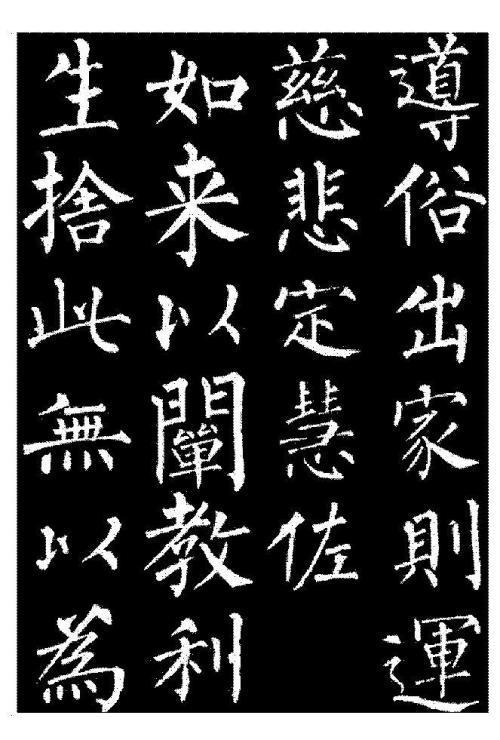 導俗出家則運
慈悲定慧佐
如来以闡教利
生捨此無以為